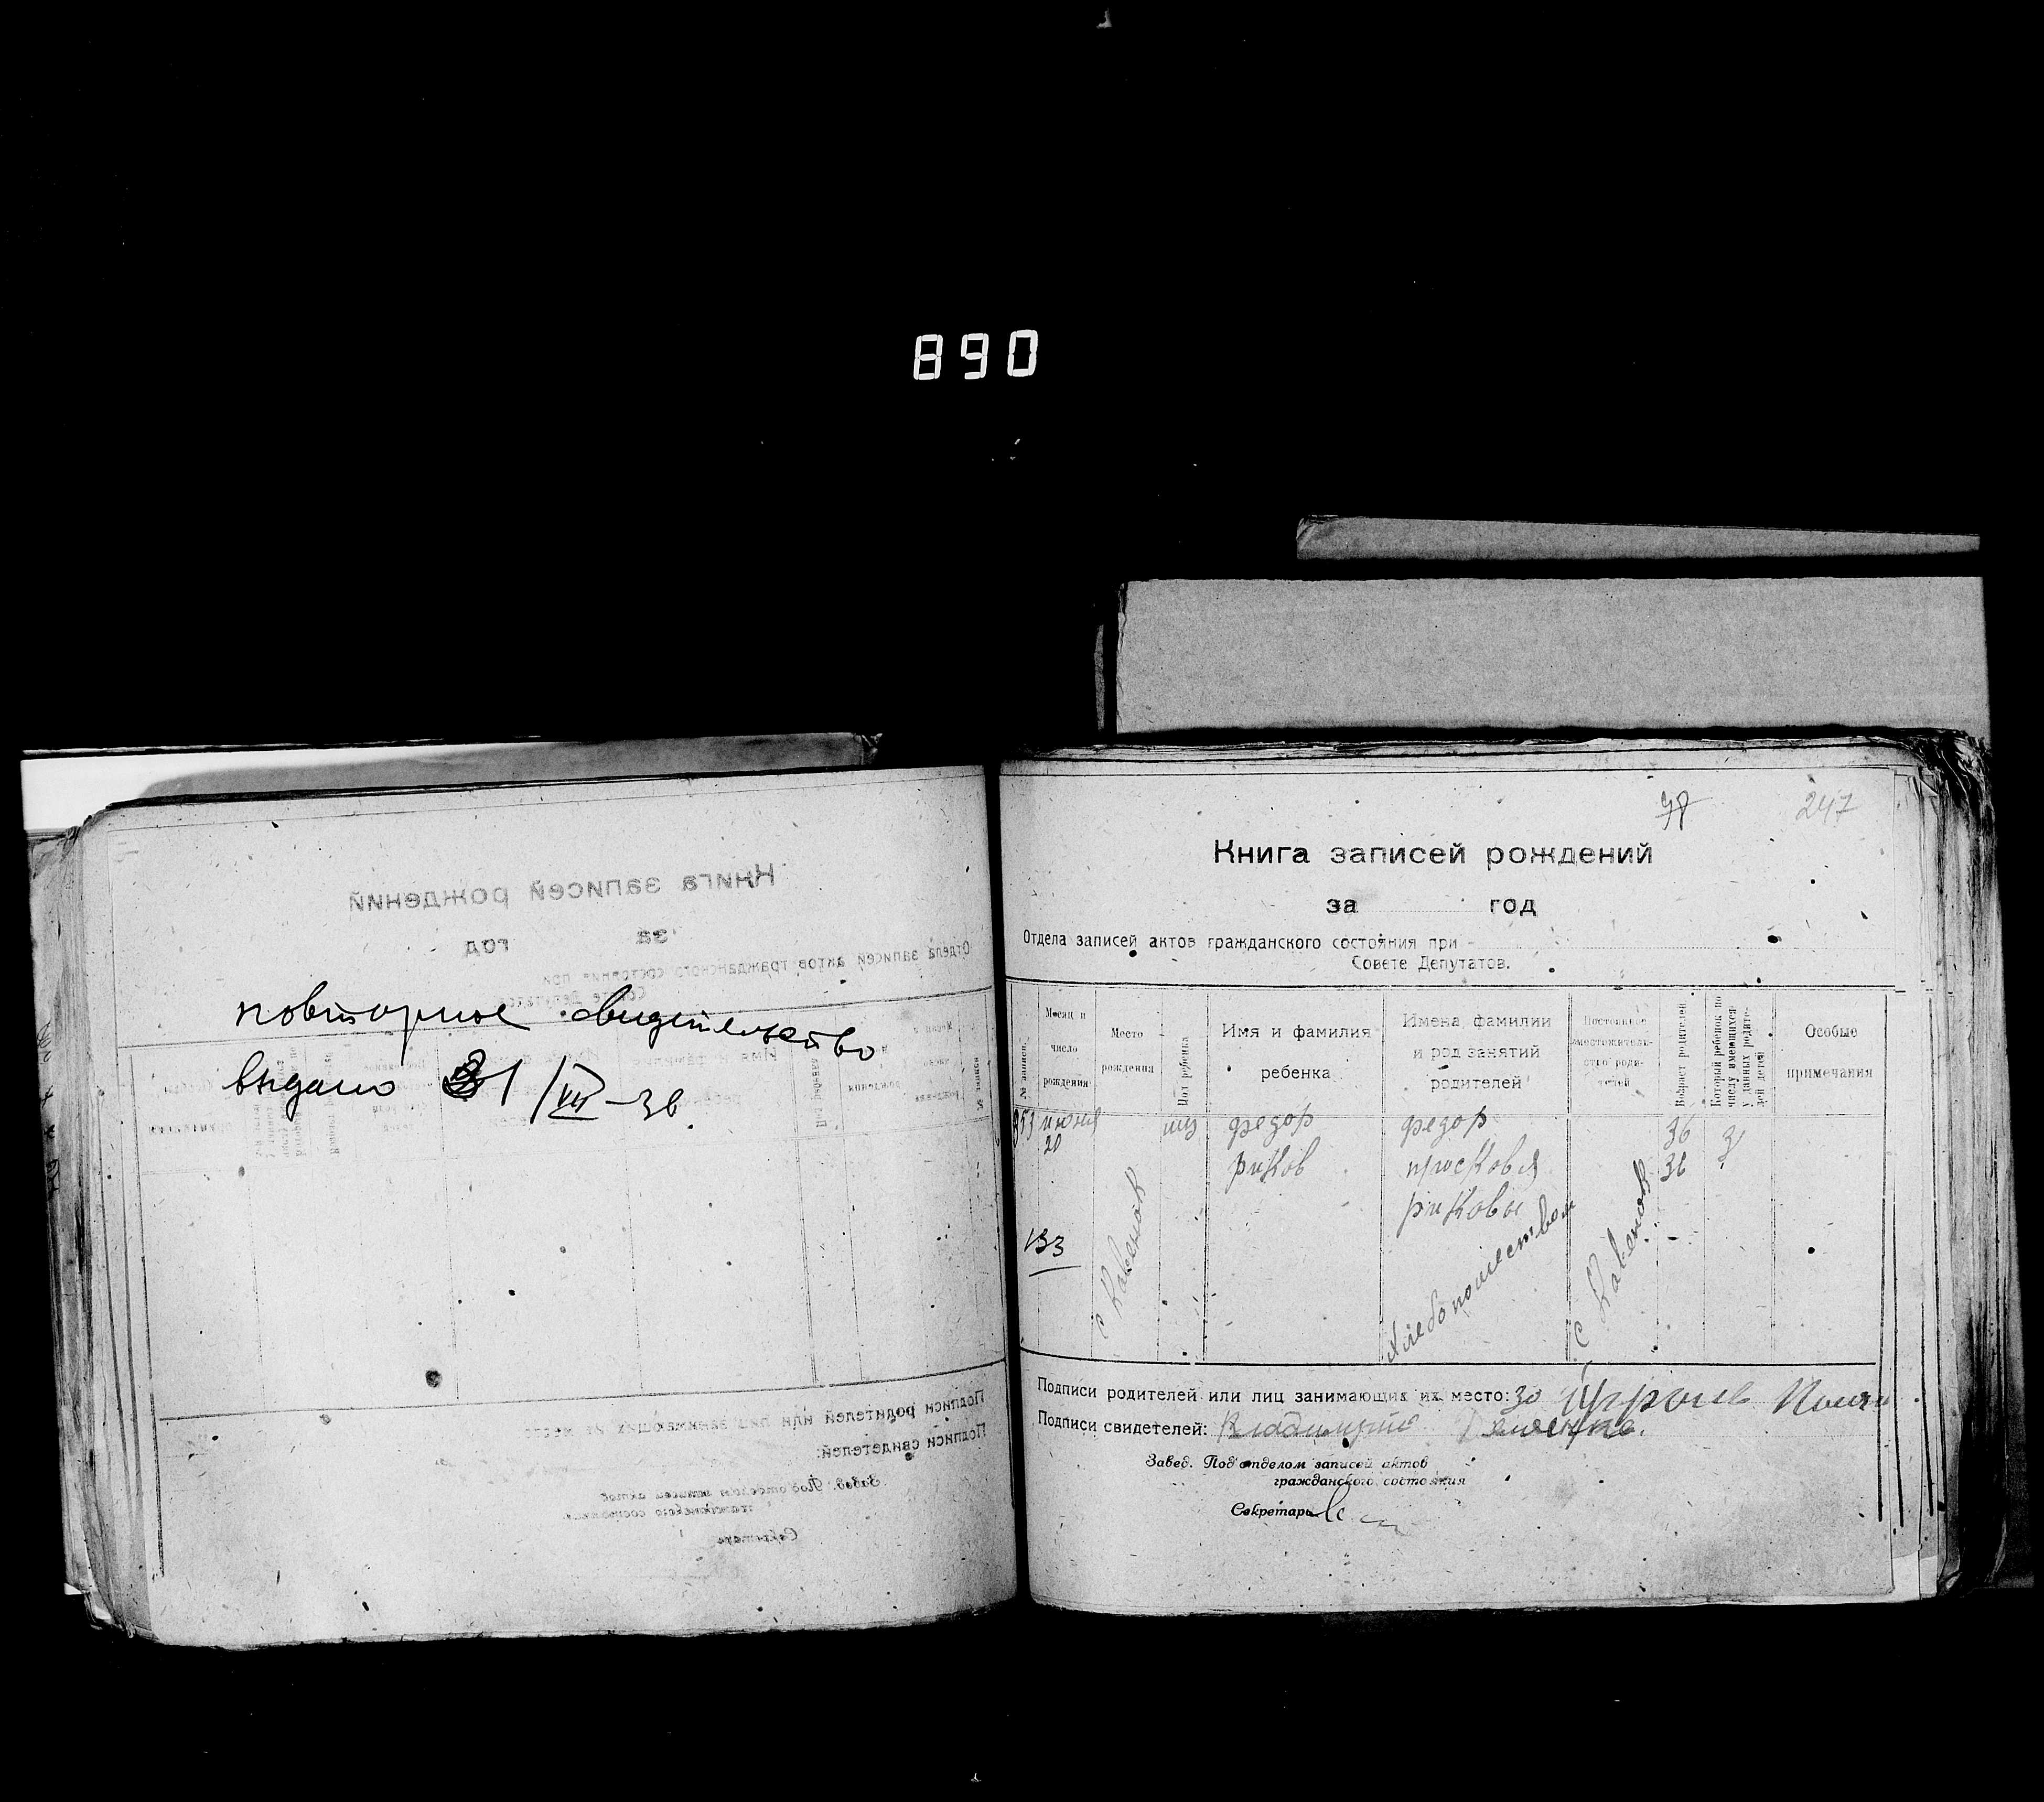 890
повторное свидетельство
выдано 31/VIII-36
247
Книга записей рождений
за год
Отдела записей актов гражданского состояния при
Совете Депутатов.
№ записи.
Месяц и число рождения
Место рождения
Пол ребенка
Имя и фамилия ребенка
Имена фамилии и род занятий родителей
Постоянное местожительство родителей
Возраст родителей
Который ребенок по числу имеющихся у данных родителей детей
Особые примечания
353 июня муз федор федор 36 3
20 риков просковия 36
риковы
133
хлебопашеством
Подписи родителей или лиц занимающих их место: за
Подписи свидетелей: Владимир
Завед. Под'отделом записей актов
гражданского состояния
Секретарь